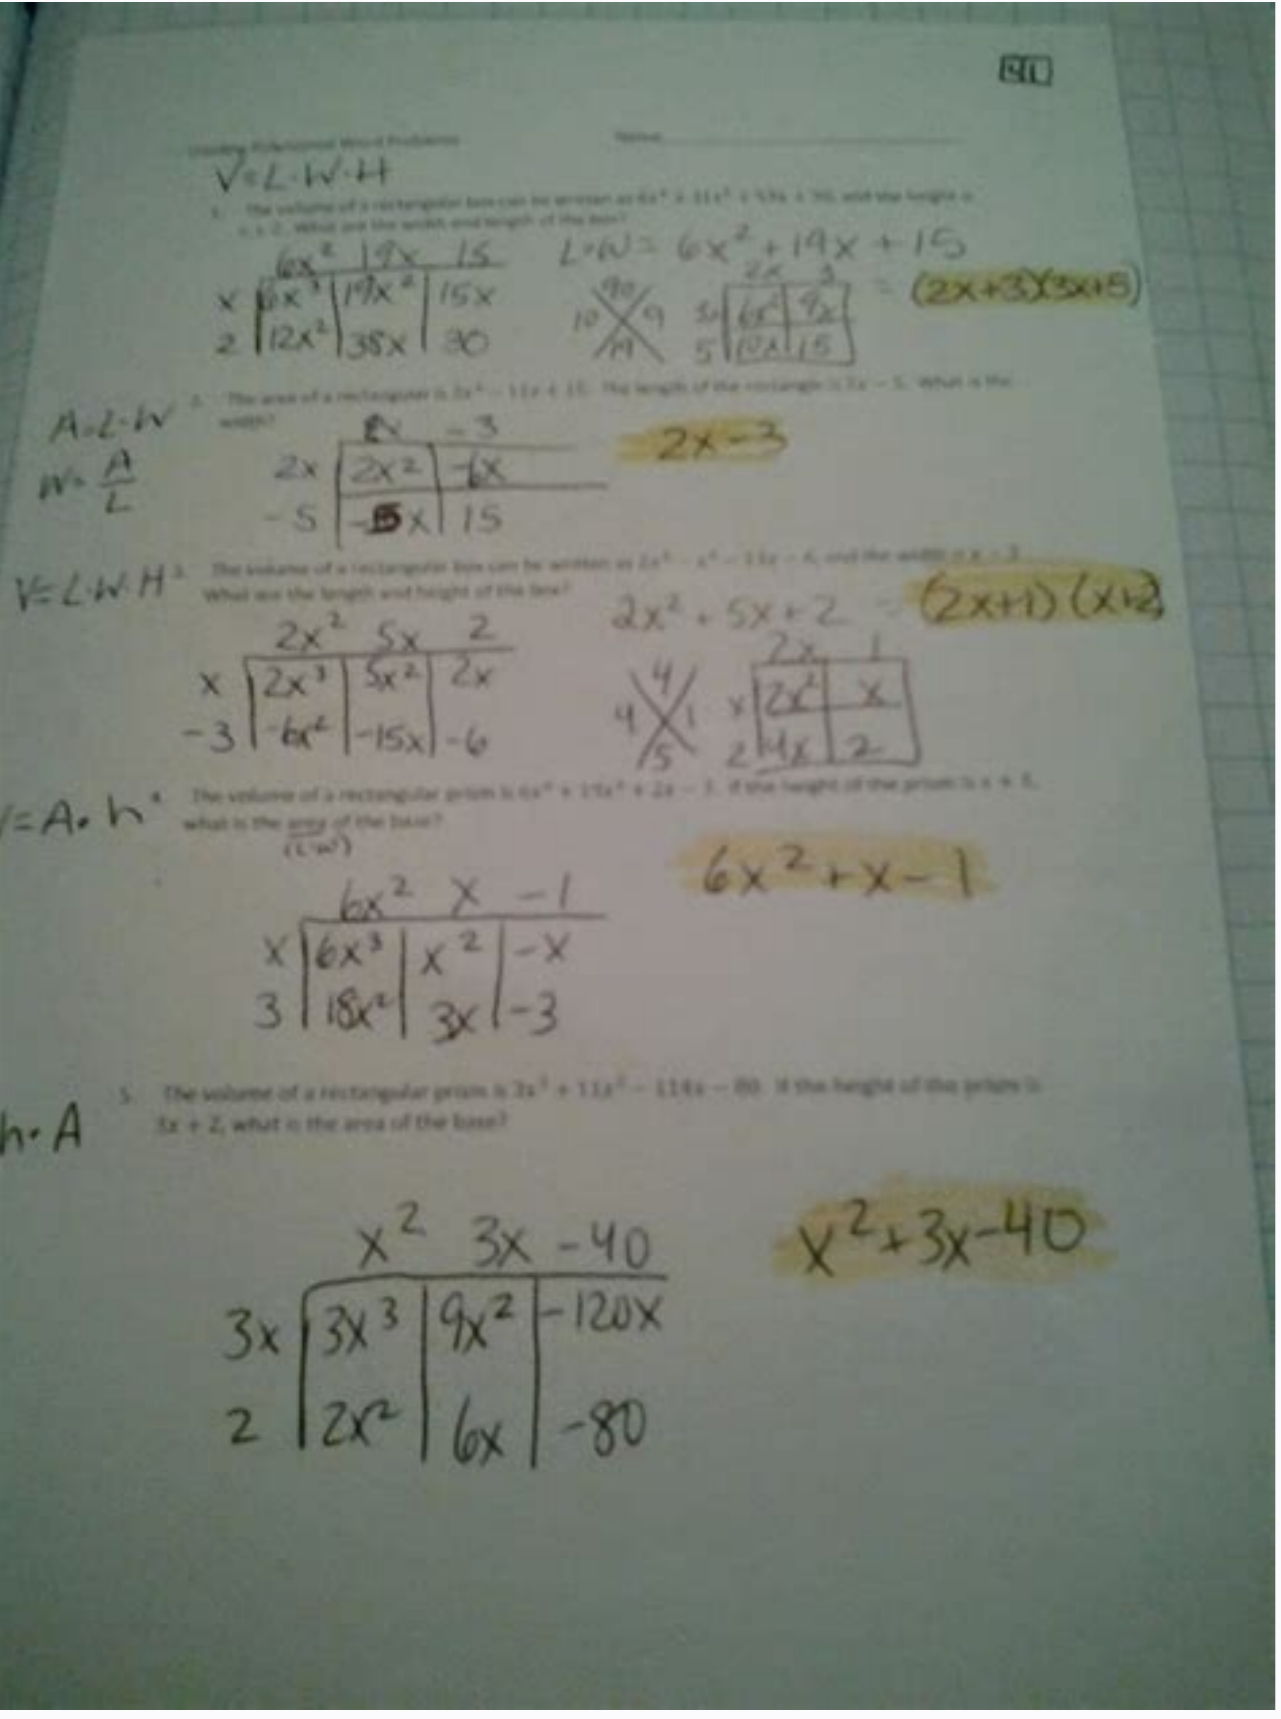 Dividing Polynomial Word Problems Name
V=L·W·H
1. The volume of a rectangular box can be written as and the height is
x + 2. What are the width and length of the box?
6x² 19x 15
x 6x³ 19x² 15x
2 12x² 38x 30
L·W = 6x² + 19x + 15
90
10 9
19
2x 3
3x 6x² 9x
5 10x 15
= (2x+3)(3x+5)
A=L·W
W= A
L
2. The area of a rectangular is 2x² − 11x + 15. The length of the rectangle is 2x − 5. What is the
width?
x -3
2x 2x² -6x
-5 -5x 15
2x-3
V=L·W·H
3. The volume of a rectangular box can be written as 2x³ − x² − 13x − 6, and the width is x − 3.
What are the length and height of the box?
2x² 5x 2
x 2x³ 5x² 2x
-3 -6x² -15x -6
2x² + 5x + 2 = (2x+1)(x+2)
4
4 1
5
2x 1
x 2x² x
2 4x 2
=A·h
4. The volume of a rectangular prism is 6x³ + 19x² + 2x − 3. If the height of the prism is x + 3,
what is the area of the base?
(L·W)
6x² x -1
x 6x³ x² -x
3 18x² 3x -3
6x²+x-1
h·A
5. The volume of a rectangular prism is 3x³ + 11x² − 114x − 80. If the height of the prism is
3x + 2, what is the area of the base?
x² 3x -40
3x 3x³ 9x² -120x
2 2x² 6x -80
x²+3x-40